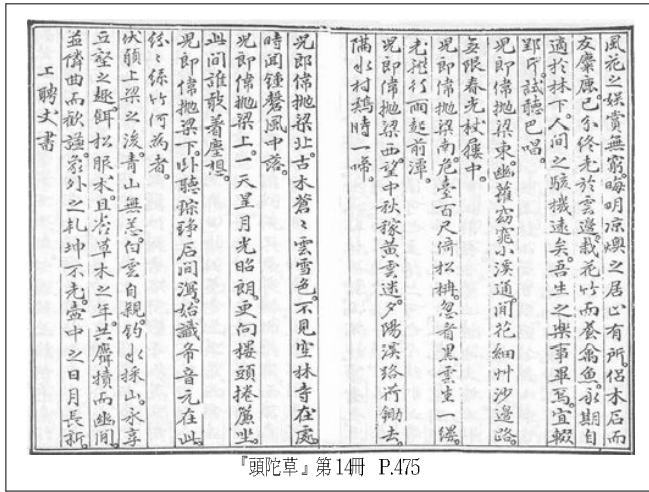 風花之娛賞無窮。晦明凉燠之居止有所。侶木石而
友麋鹿。已分終老於雲邊。栽花竹而養禽魚。永期自
適於林下。人間之駭機遠矣。吾生之樂事畢焉。宜輟
郢斤。試聽巴唱。
兒郎偉抛梁東。幽蘿窈窕小溪通。閒花細艸沙邊路。
無限春光杖屨中。
兒郎偉抛梁南。危臺百尺倚松枏。忽看黑雲生一縷。
老龍行雨起前潭。
兒郎偉抛梁西。望中秋稼黃雲迷。夕陽溪路荷鋤去。
隔水村鷄時一啼。
兒郎偉抛梁北。古木蒼〻雲雪色。不見空林寺在處。
時聞鍾磬風中落。
兒郎偉抛梁上。一天星月光昭朗。更向樓頭捲簾坐。
此間誰敢着塵想。
兒郎偉抛梁下。卧聽琮琤石間瀉。始識希音元在此。
〻絲竹何為者。
伏願上梁之後。青山無恙。白雲自親。釣水採山。永享
丘壑之趣。餌松服朮。且養草木之年。共麛犢而幽閒。
並隣曲而歡謐。象外之乾坤不老。壺中之日月長新。
工聘文書
『頭陀草』第14冊 P.475